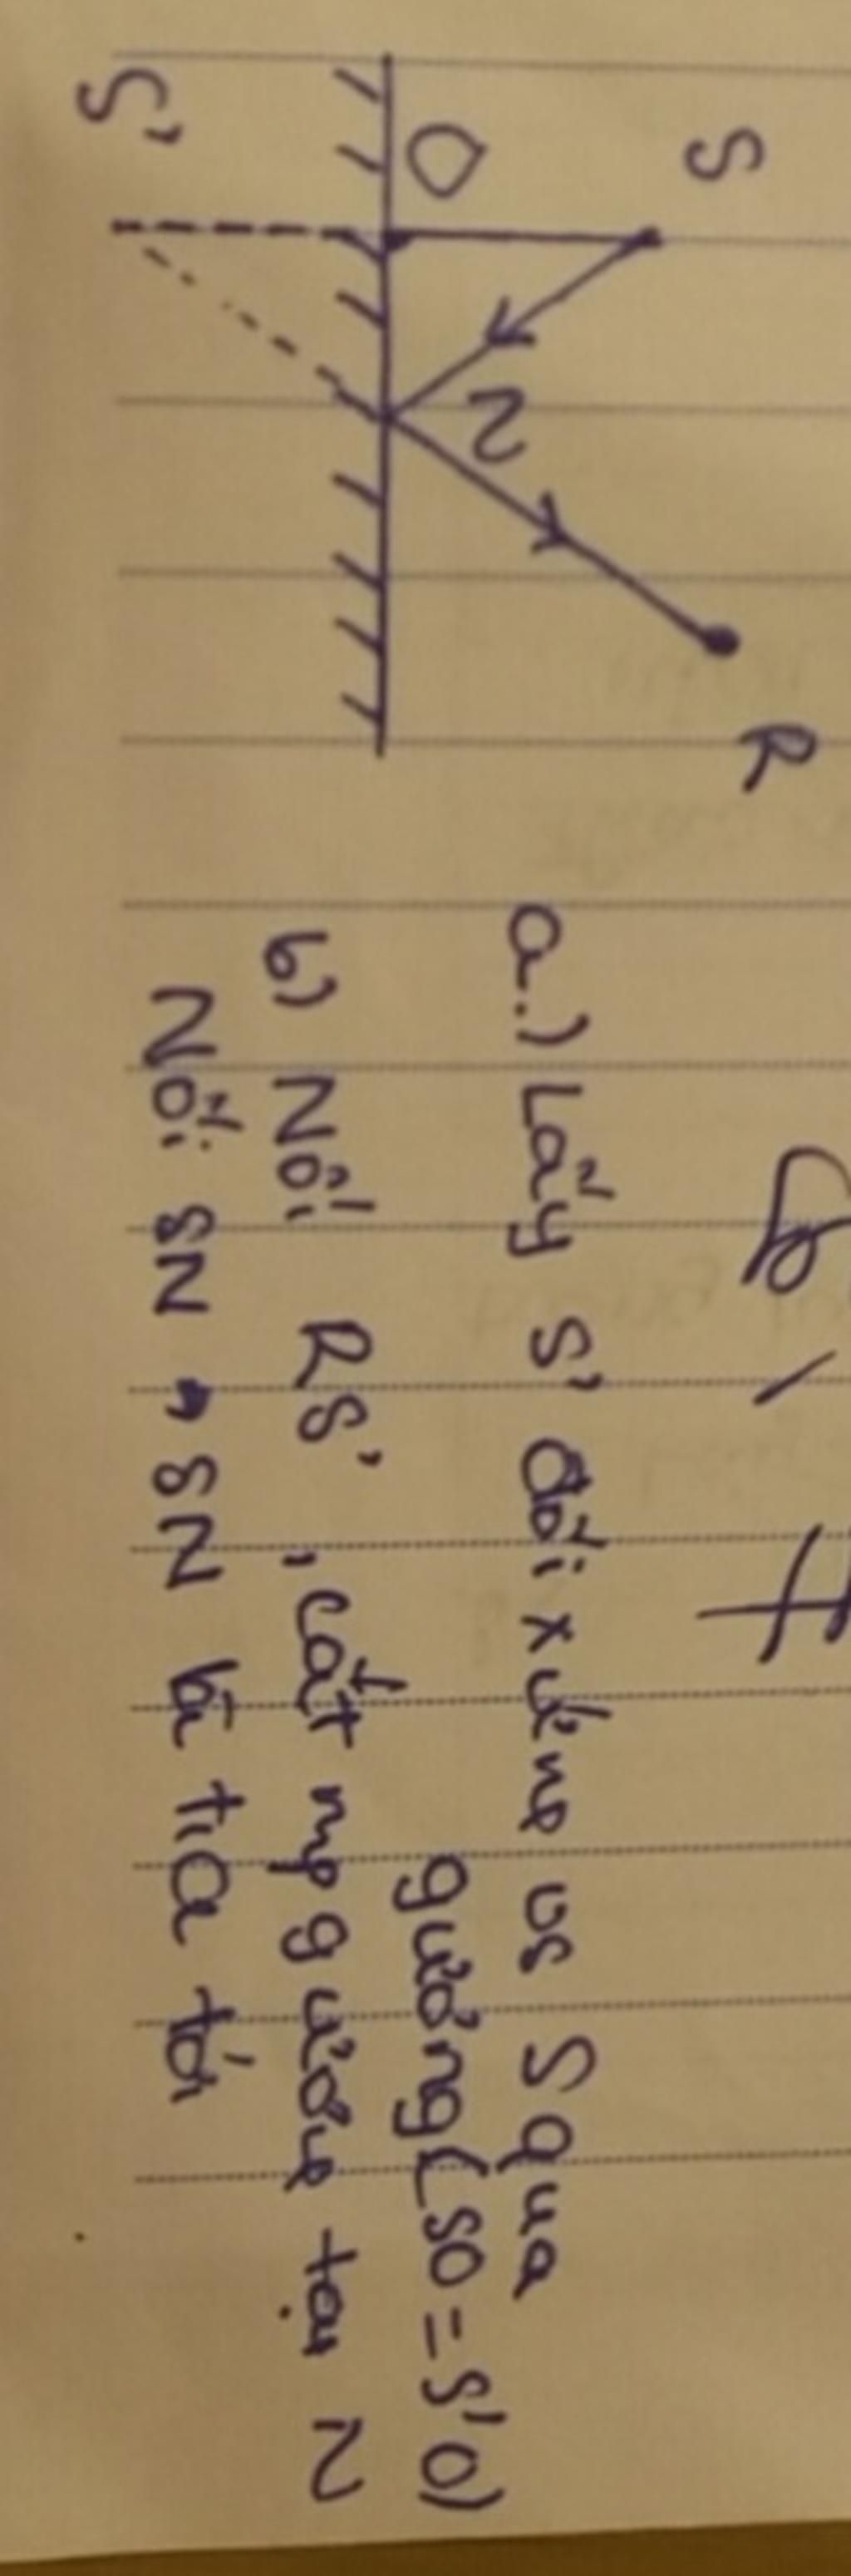 S
R
O
N
S'
a.) Lấy S' đối xứng vs S qua
gương (SO = S'O)
b) Nối RS', cắt mp gương tại N
Nối SN, SN là tia tới